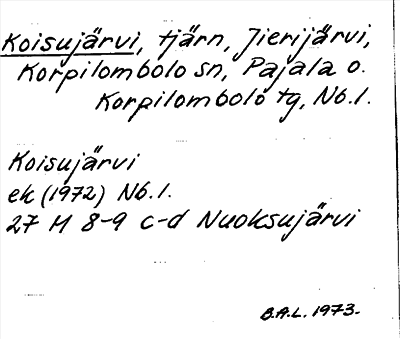 Koisujärvi, tjärn, Jierijärvi,
Korpilombolo sn, Pajala o.
Korpilombolo tg, Nb.l.
Koisujärvi
ek (1972) Nb.l.
27 M 8-9 c-d Nuoksujärvi
B.A.L. 1973.